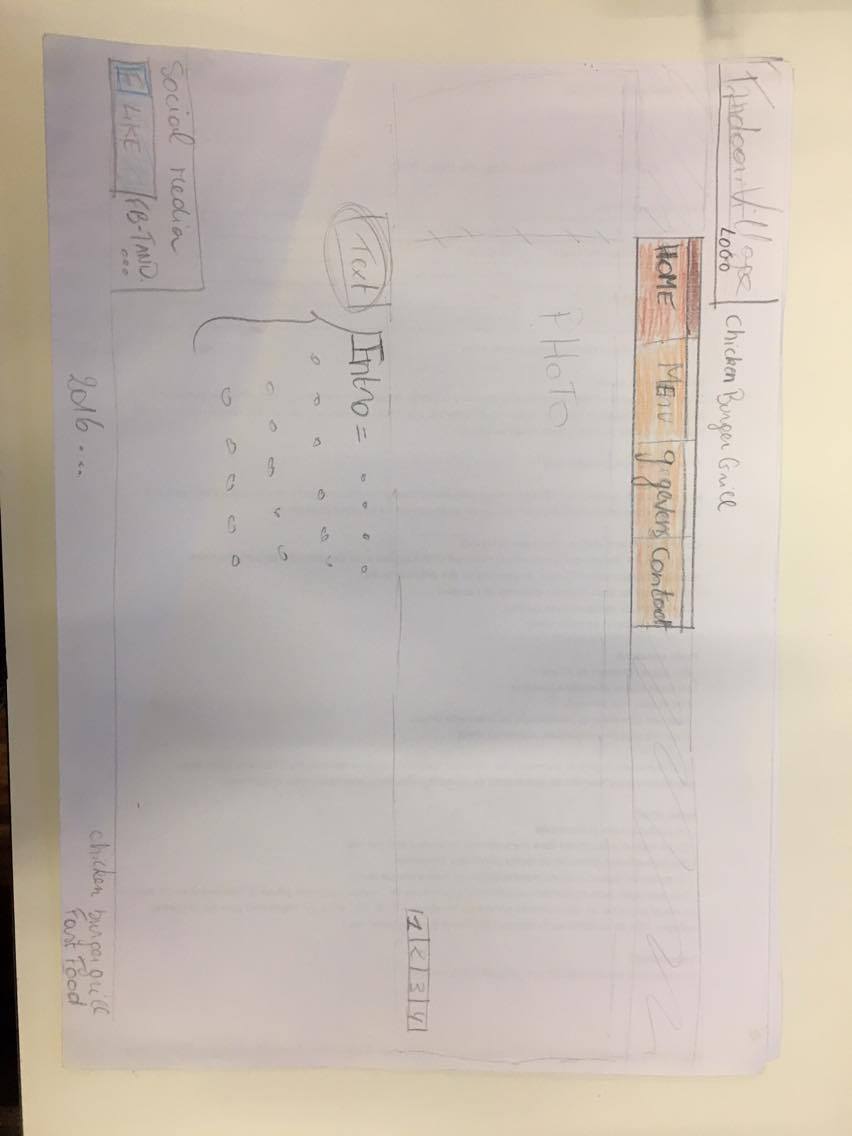 Tandoori Village
LOGO
Chicken Burger Grill
HOME MENU gigevens Contact
PHOTO
1 2 3 4
Text
Intro =
Social Media
F LIKE FB-TAND.
...
2016...
chicken burger grill
Fast Food